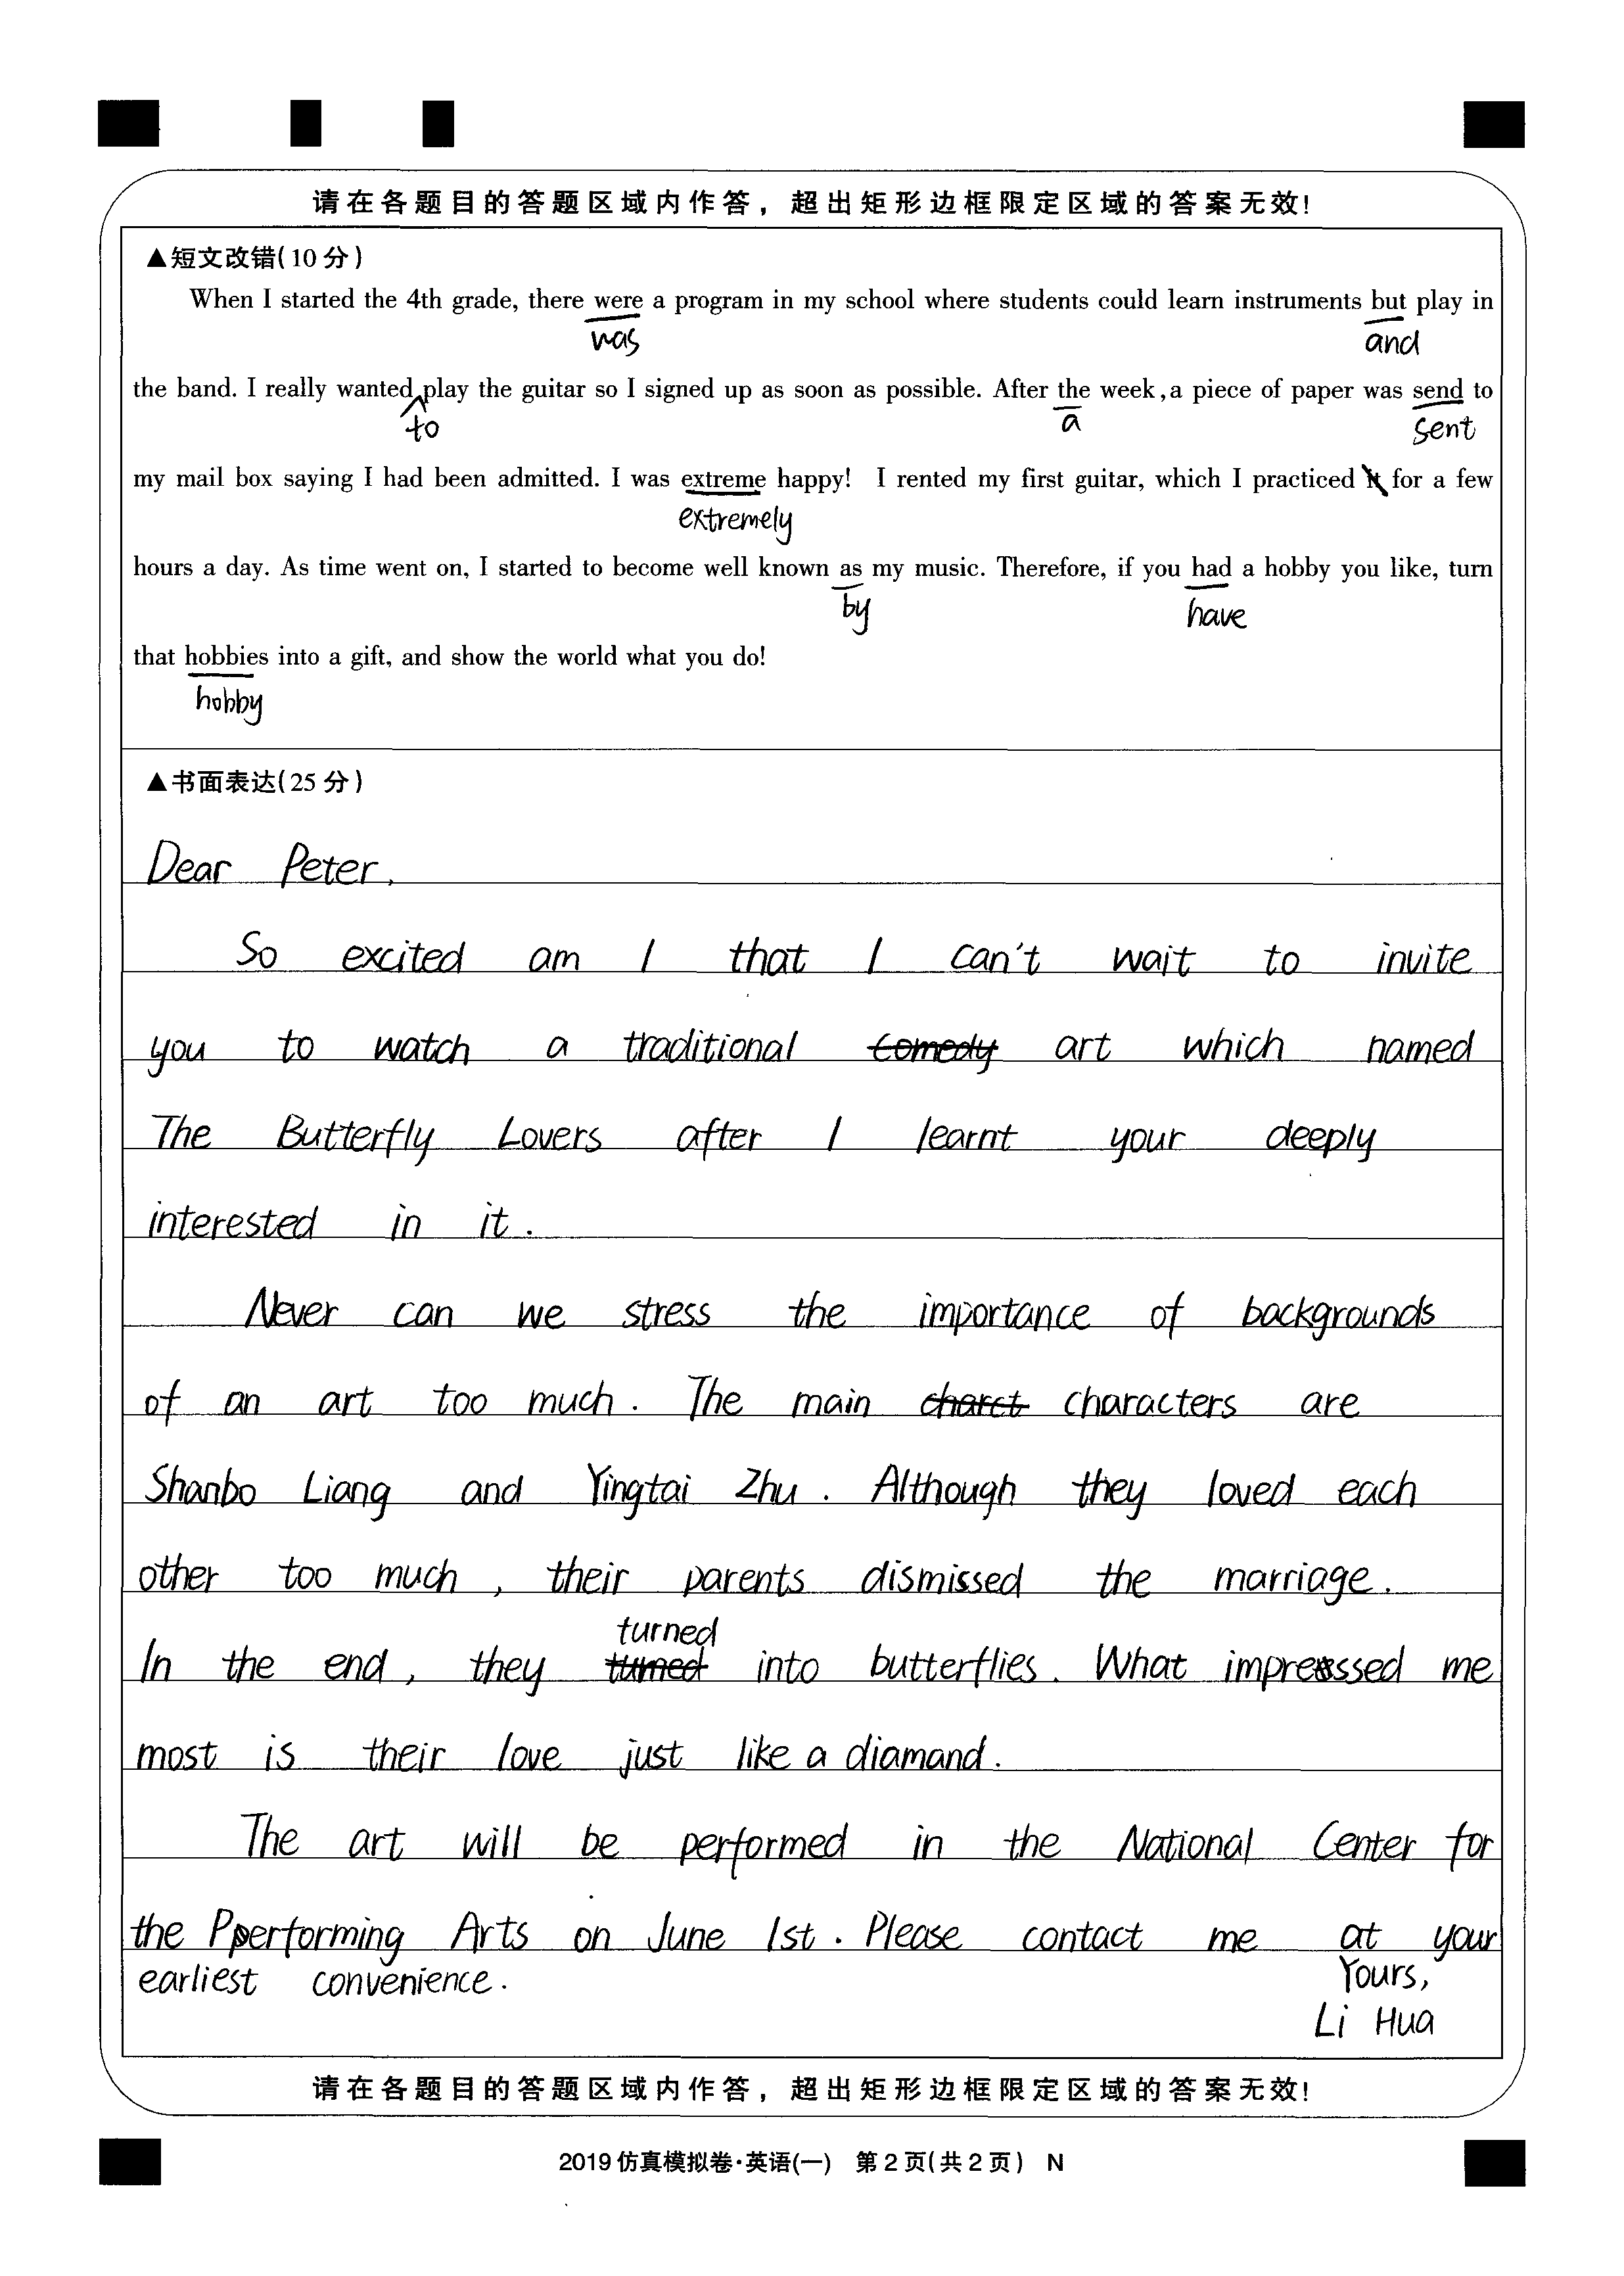 请在各题目的答题区域内作答，超出矩形边框限定区域的答案无效!
▲短文改错(10分)
When I started the 4th grade, there were a program in my school where students could learn instruments but play in
was and
the band. I really wanted play the guitar so I signed up as soon as possible. After the week, a piece of paper was send to
to a sent
my mail box saying I had been admitted. I was extreme happy! I rented my first guitar, which I practiced it for a few
extremely
hours a day. As time went on, I started to become well known as my music. Therefore, if you had a hobby you like, turn
by have
that hobbies into a gift, and show the world what you do!
hobby
▲书面表达(25分)
Dear Peter,
So excited am I that I can't wait to invite
you to watch a traditional comedy art which named
The Butterfly Lovers after I learnt your deeply
interested in it.
Never can we stress the importance of backgrounds
of an art too much. The main charct characters are
Shanbo Liang and Yingtai Zhu. Although they loved each
other too much, their parents dismissed the marriage.
turned
In the end, they turned into butterflies. What impressed me
most is their love just like a diamand.
The art will be performed in the National Center for
the Performing Arts on June 1st. Please contact me at your
earliest convenience. Yours,
Li Hua
请在各题目的答题区域内作答，超出矩形边框限定区域的答案无效!
2019仿真模拟卷·英语(一) 第2页(共2页) N